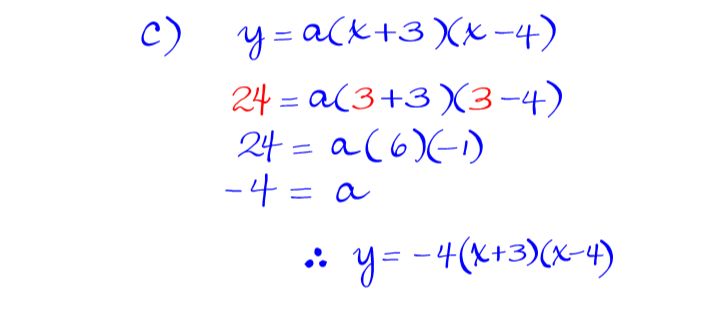 c) y = a(x+3)(x-4)
24 = a(3+3)(3-4)
24 = a(6)(-1)
-4 = a
∴ y = -4(x+3)(x-4)